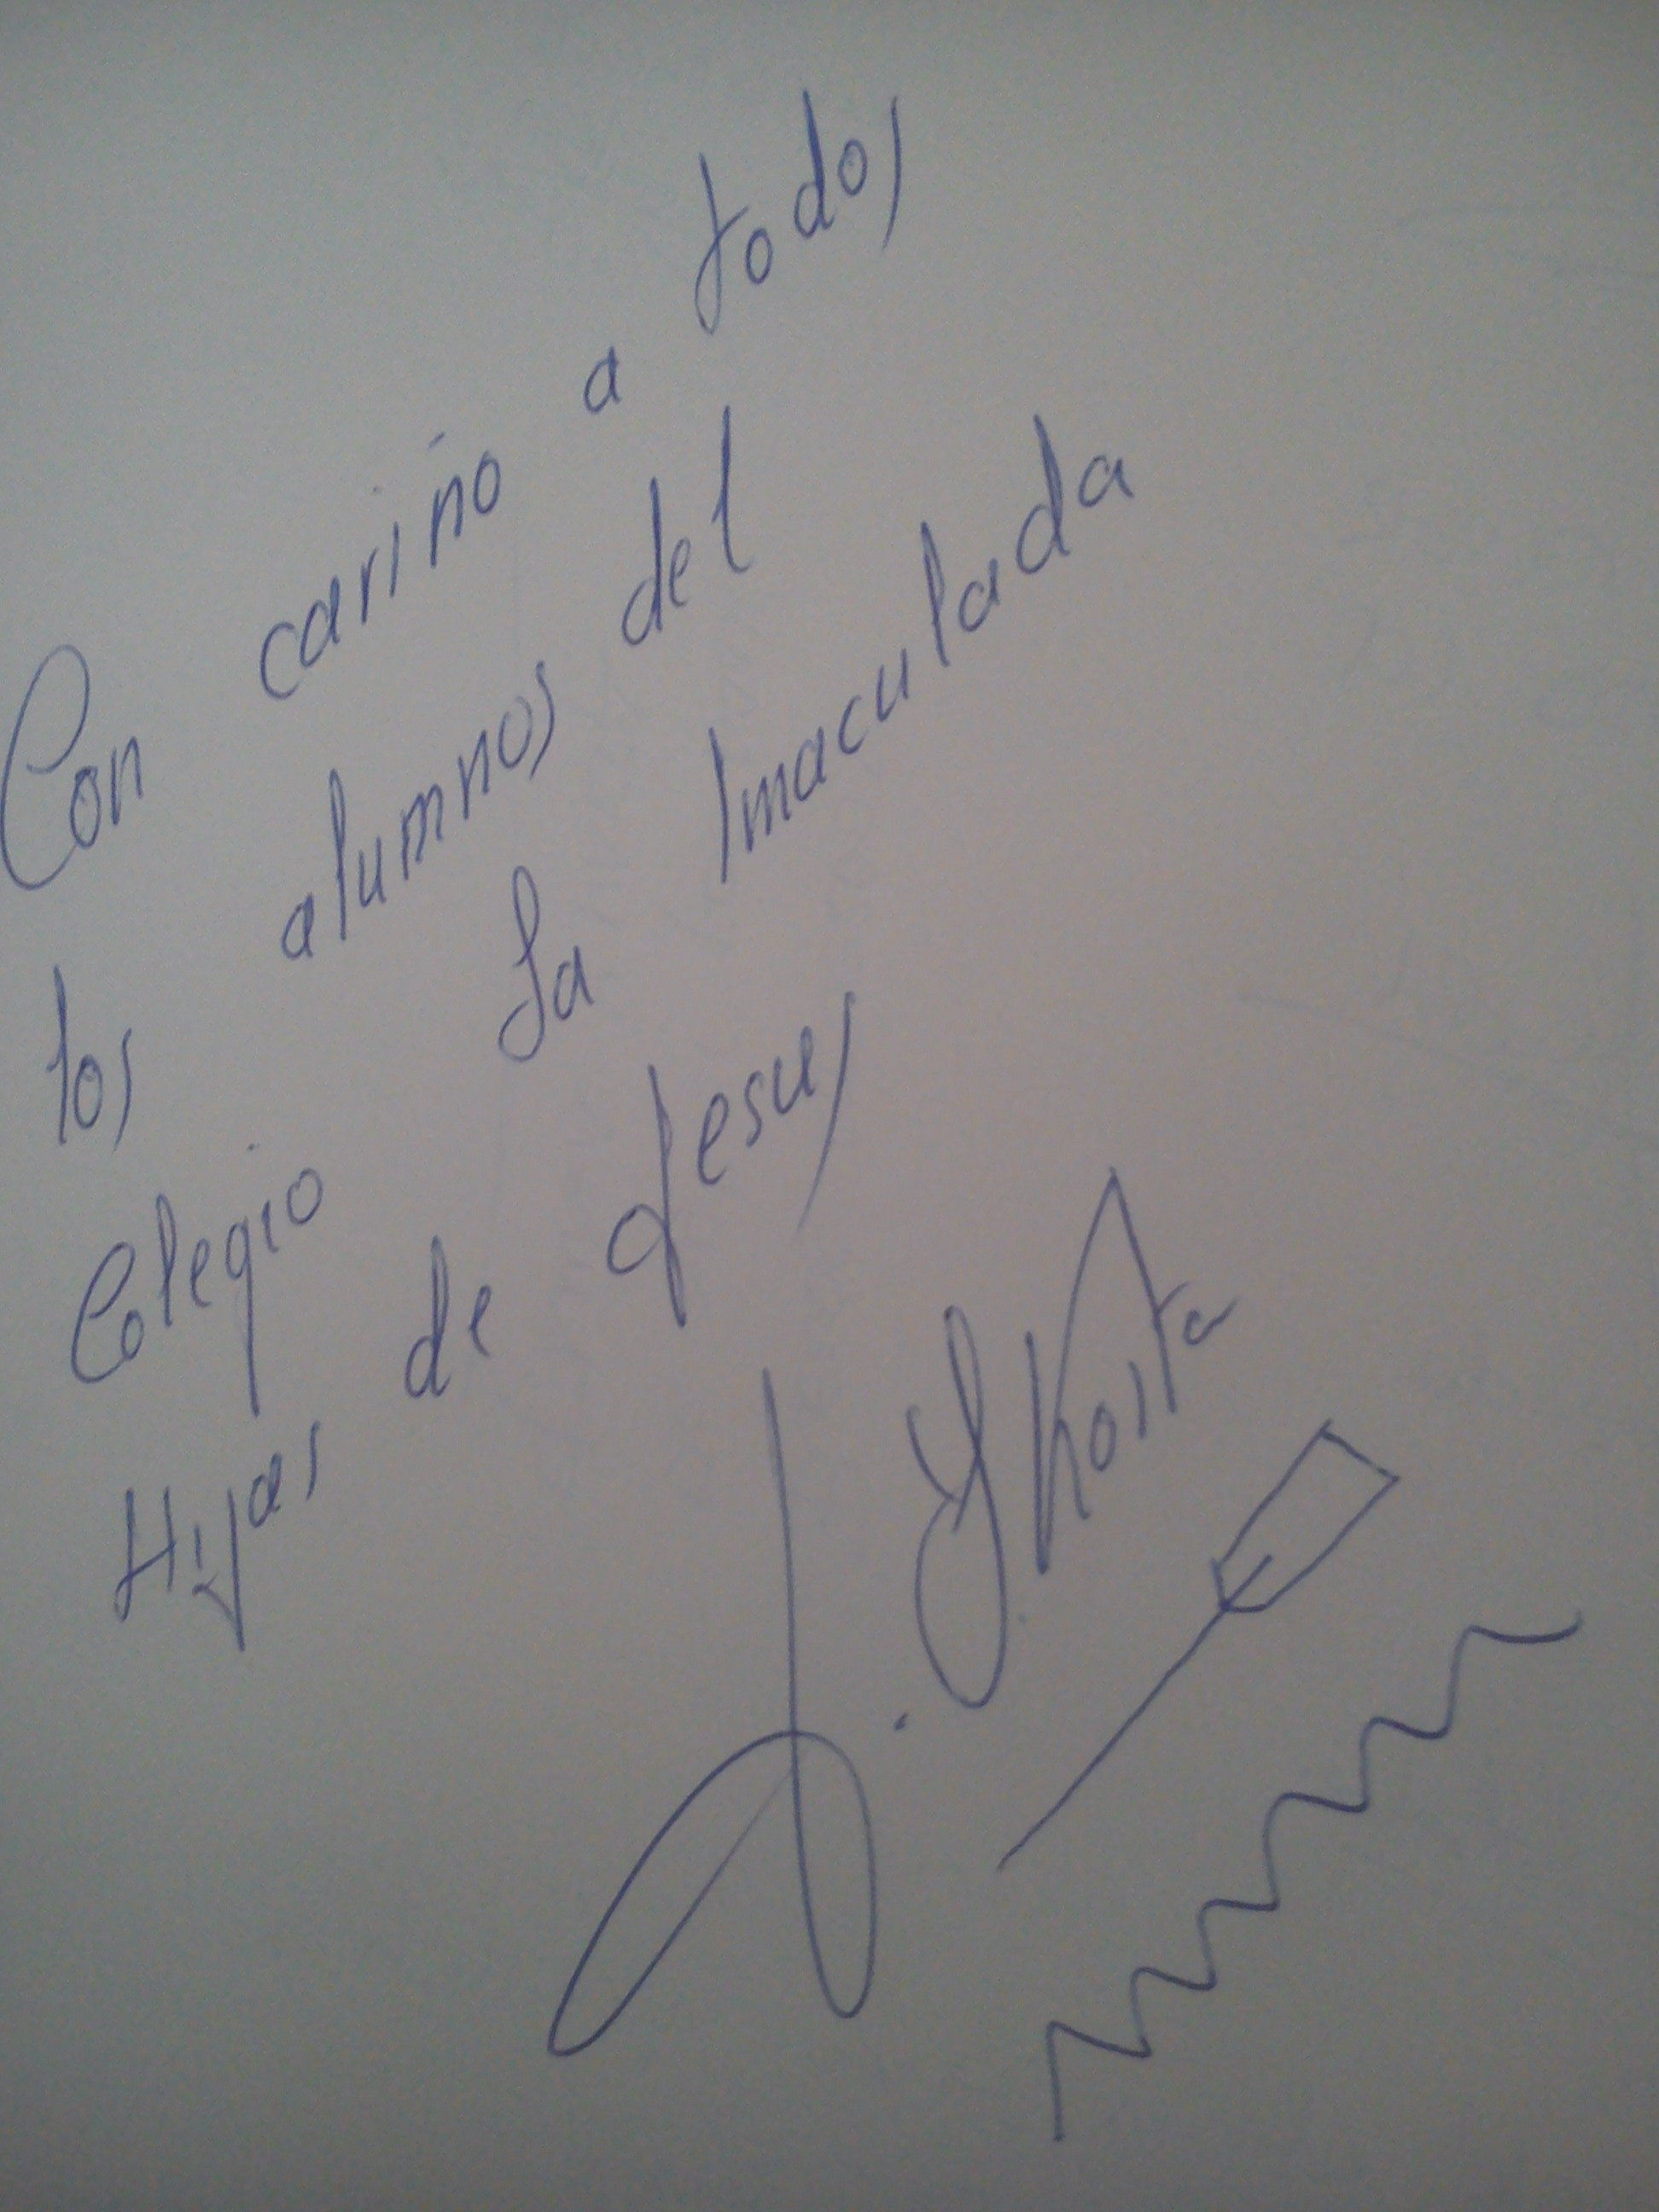 Con cariño a todos
los alumnos del
Colegio La Imaculada
Hijas de Jesus
J. Y. Kosta